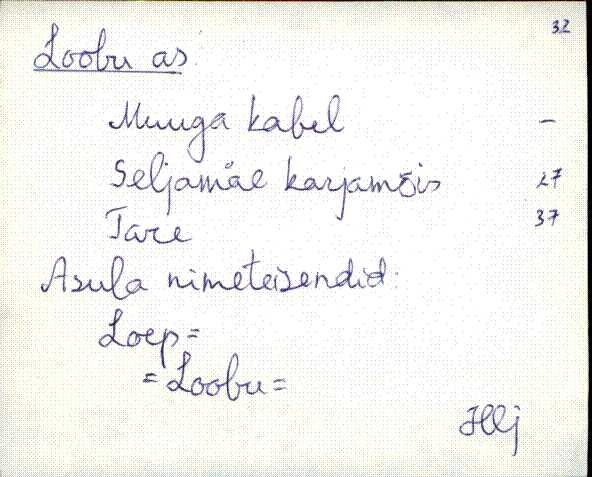 32
Loobu as.
Muuga kabel –
Seljamäe karjamõis 27
Tare 37
Asula nimeteisendid:
Loep =
= Loobu =
Hlj